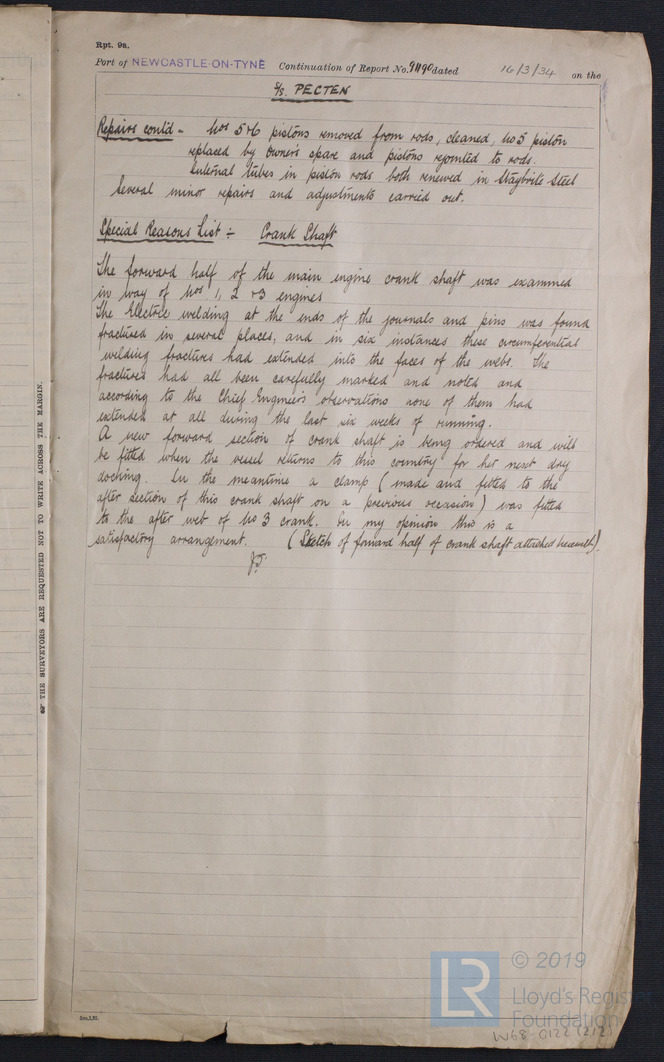 Rpt. 9a.
Port of NEWCASTLE-ON-TYNE Continuation of Report No. 91190 dated 16/3/34 on the
S/S. PECTEN
Repairs contd - Nos 5&6 pistons removed from rods, cleaned, No 5 piston
replaced by Owner's spare and pistons rejointed to rods.
Internal tubes in piston rods both renewed in Staybrite Steel
Several minor repairs and adjustments carried out.
Special Reasons List :- Crank Shaft
The forward half of the main engine crank shaft was examined
in way of Nos. 1, 2 & 3 engines
The Electric welding at the ends of the journals and pins was found
fractured in several places, and in six instances these circumferential
welding fractures had extended into the faces of the webs. The
fractures had all been carefully marked and noted and
according to the Chief Engineer's observations none of them had
extended at all during the last six weeks of running.
A new forward section of crank shaft is being ordered and will
be fitted when the vessel returns to this country for her next dry
docking. In the meantime a clamp (made and fitted to the
after section of this crank shaft on a previous occasion) was fitted
to the after web of No 3 crank. In my opinion this is a
satisfactory arrangement. (Sketch of forward half of crank shaft attached herewith).
☞ THE SURVEYORS ARE REQUESTED NOT TO WRITE ACROSS THE MARGIN.
LR
© 2019
Lloyd's Register
Foundation
W68-0122 (2/2)